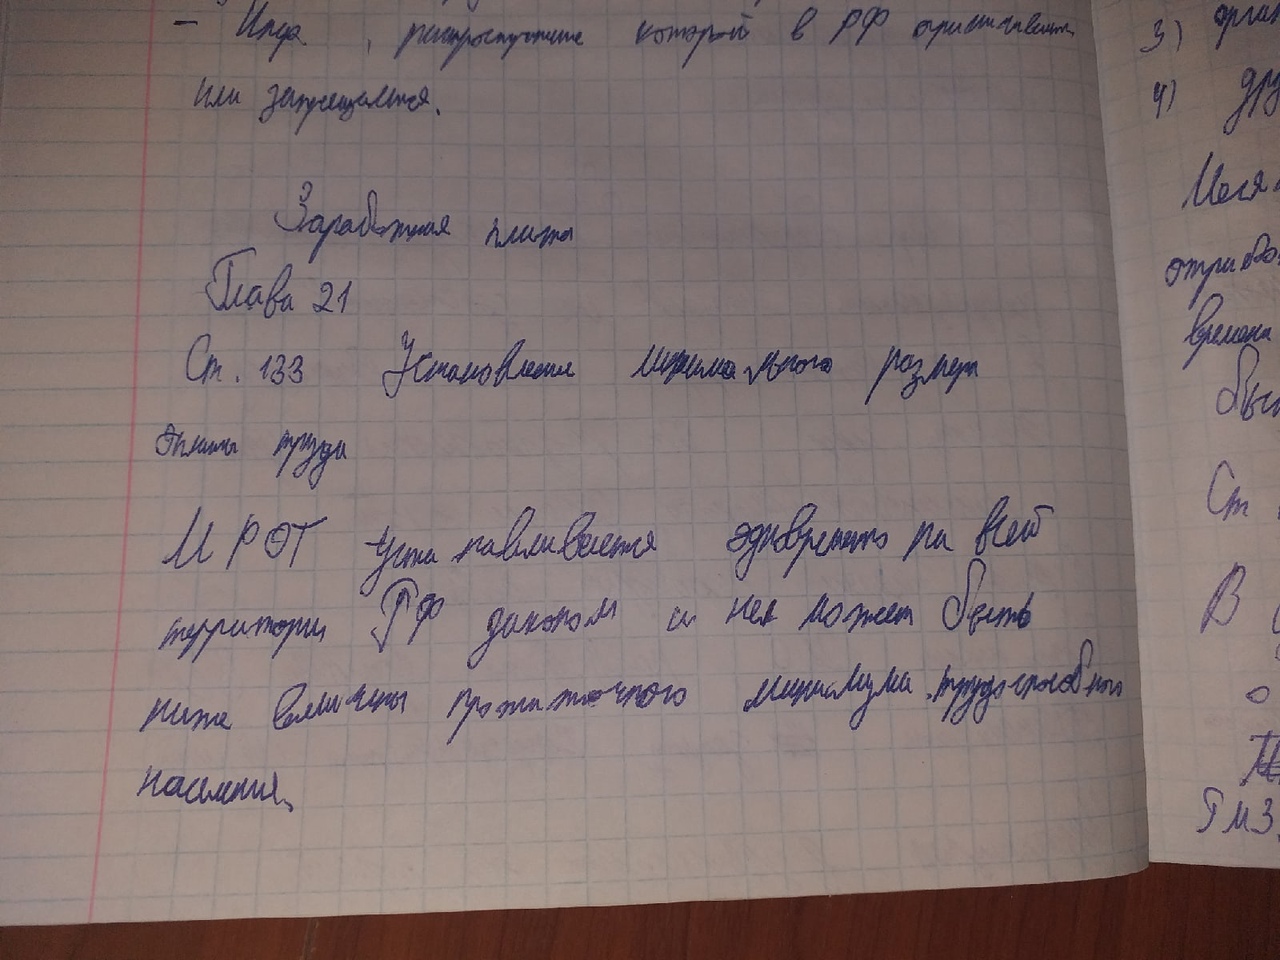 - Инфа, распространение которой в РФ ограничивается
или запрещается.
Заработная плата
Глава 21
Ст. 133 Установление минимального размера
оплаты труда
МРОТ устанавливается одновременно на всей
территории РФ законом и не может быть
ниже величины прожиточного минимума трудоспособного
населения.
3)
4)
Ст
В